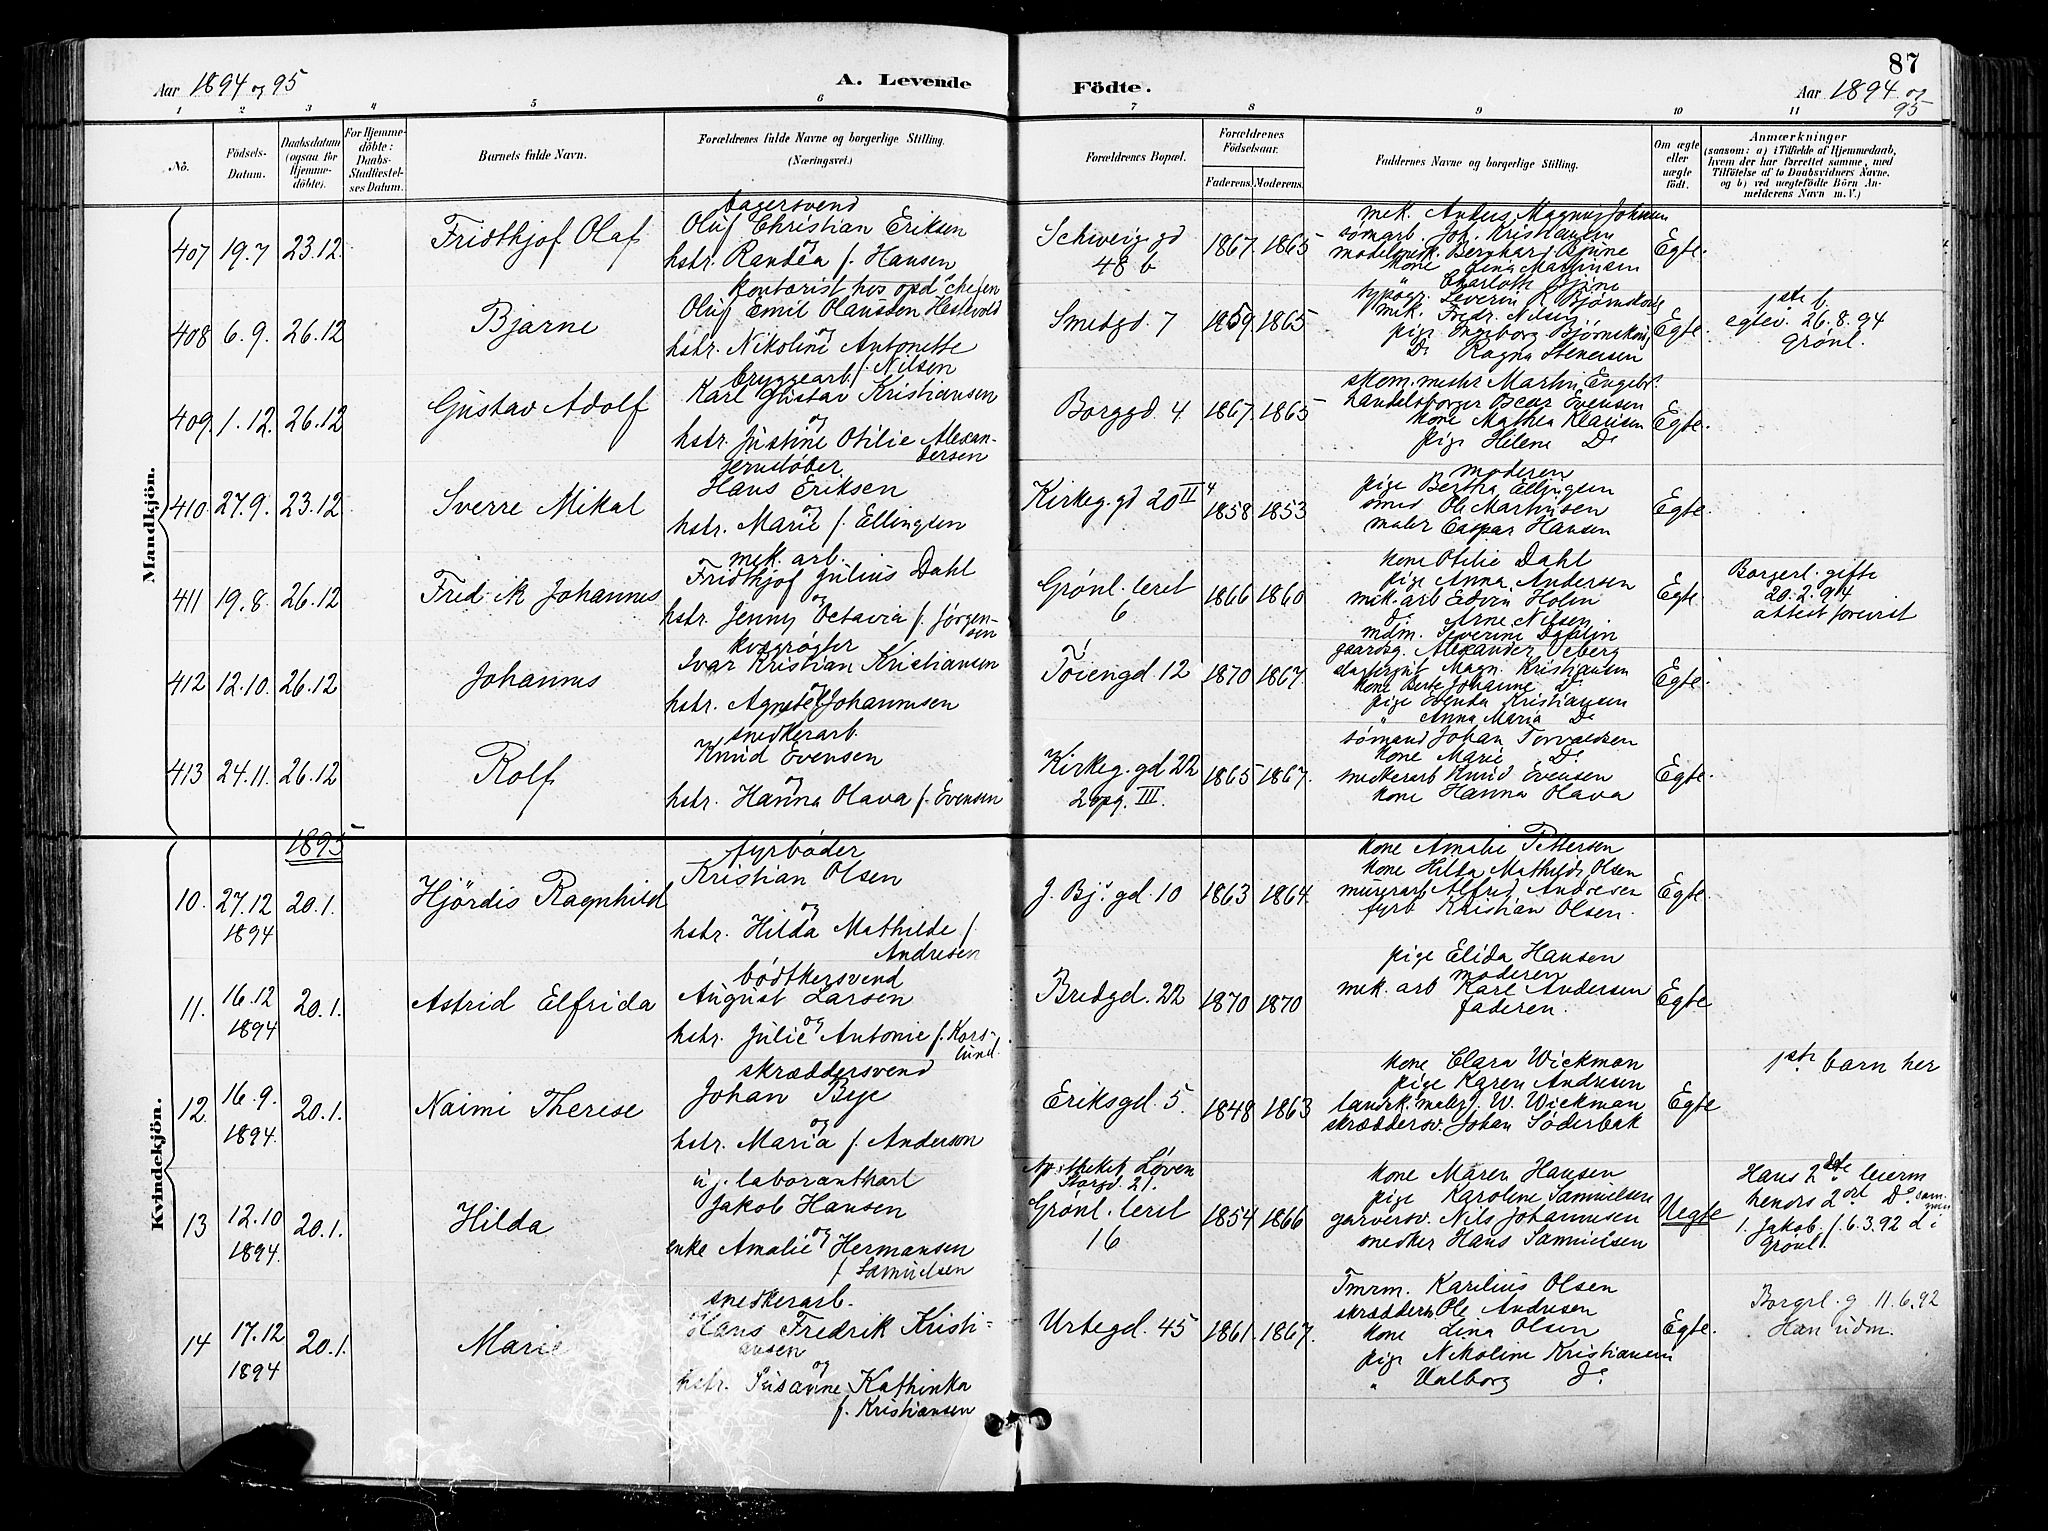 87
Aar 1894 og 95
A. Levende Födte.
Aar 1894 og 95
1 2 3 4 5 6 7 8 9 10 11
No.
Födsels-Datum.
Daabsdatum (ogsaa for Hjemme-döbte).
For Hjemme-döbte: Daabs-Stadfæstel-ses Datum.
Barnets fulde Navn.
Forældrenes fulde Navne og borgerlige Stilling. (Næringsvei.)
Forældrenes Bopæl.
Forældrenes Födselsaar.
Faderens. Moderens.
Faddernes Navne og borgerlige Stilling.
Om ægte eller uægte födt.
Anmærkninger
(saasom: a) i Tilfælde af Hjemmedaab, hvem der har forrettet samme, med Tilföielse af to Daabsvidners Navne, og b) ved uægtefödte Börn An-melderens Navn m. V.)
Mandkjön.
407 19.7 23.12. Fridthjof Olaf
bagersvend
Oluf Christian Eriksen
og
hstr. Randea f. Hansen
Schweiggd
48 b
1867. 1865 Egte.
mek. Anders Magnus Johnsen
sømarb. Joh. Kristiansen
kone Lina Martinsen
" Charlotte Bjune
408 6.9. 26.12 Bjarne
kontorist hos opd.chefen
Oluf Emil Olaussen Hestvold
og
hstr. Nikoline Antonette
f. Nilsen
Smedgd. 7
1859 1865 Egte.
typogr. Severin R. Bjørnskog
mek. Fredr. Nilsen
pige Ingeborg Bjørnskog
Do Ragna Stenersen
1ste b.
egtev. 26.8.94
Grønl.
409. 1.12. 26.12 Gustav Adolf
bryggearb.
Karl Gustav Kristiansen
og
hstr. Justine Otilie Alexan-
dersen
Borggd. 4
1867. 1865 Egte.
skom.mestr Martin Engebr.
handelsborger Oscar Evensen
kone Mathea Klausen
pige Helene Do
410 27.9. 23.12 Sverre Mikal
jernstøber
Hans Eriksen
og
hstr. Marie f. Ellingsen
Kirkeg.gd 20 II 4
1858 1853 Egte.
moderen
pige Bertha Ellingsen
smed Ole Martinsen
maler Caspar Hansen
411 19.8. 26.12 Fredrik Johannes
mek. arb.
Fridthjof Julius Dahl
og
hstr. Jenny Octavia f. Jørgen-
sen
Grønl. leret
6
1866 1860 Egte.
kone Otilie Dahl
pige Anna Andersen
mek.arb Edvin Holm
Do Arne Nilsen
Borgerl. gifte
20.2.94
attest forevist
412 12.10. 26.12 Johannes
kvægrøgter
Ivar Kristian Kristiansen
og
hstr. Agnete Johannesen
Tøiengd. 12
1870 1867. Egte.
mdm. Severine Dahlin
gaardsg. Alexander Seberg
Magn. Kristiansen
kone Berte Johanne Do
pige Hulda Kristiansen
" Anna Maria Do
413 24.11. 26.12 Rolf
snedkerarb.
Knud Evensen
og
hstr. Hanna Olava f. Evensen
Kirkeg.gd 22
2 opg. III.
1865 1867. Egte.
sømand Johan Torvaldsen
kone Marie Do
snedkerarb Knud Evensen
kone Hanna Olava
Kvindekjön.
1895
10. 27.12 1894 20.1. Hjördis Ragnhild
fyrbøder
Kristian Olsen
og
hstr. Hilda Mathilde f.
Andresen
J. Bj.s gd. 10
1863 1864. Egte.
kone Amalie Pettersen
kone Hilda Mathilde Olsen
murerarb Alfred Andresen
fyrb Kristian Olsen.
11. 16.12 1894 20.1. Astrid Elfrida
bødtkersvend
August Larsen
og
hstr. Julie Antonie f. Kors-
lund.
Bredgd. 22
1870 1870 Egte
pige Elida Hansen
moderen
mek. arb Karl Andersen
faderen.
12. 16.9. 1894. 20.1. Naimi Therese
skræddersvend
Johan Bye
og
hstr. Maria f. Anderson
Eriksgd. 5.
1848 1863 Egte
kone Clara Wickman
pige Karen Andresen
landsk.maler J. W. Wickman
skræddersv. Johan Söderbak
1ste barn her
13 12.10 1894. 20.1. Hilda
uj. laboranthart
Jakob Hansen
og
enke Amalie Hermansen
f. Samuelsen
Apotheket Løven
Storgd. 21.
Grønl. leret
16
1854 1866 Uegte
kone Maren Hansen
pige Karoline Samuelsen
garversv. Nils Johannesen
snedker Hans Samuelsen
Hans 2det leierm
hendes 2det Do sam-
men
1. Jakob f. 6.3.92 d i
Grønl.
14 17.12 1894 20.1. Marie
snedkerarb.
Hans Fredrik Kristi-
ansen
og
hstr. Susanne Kathinka
f. Kristiansen
Urtegd. 45
1861. 1867. Egte.
Tmrm. Karilius Olsen
skrædderm Ole Andresen
kone Lina Olsen
pige Nikoline Kristiansen
" Valborg Do
Borgrl. g 11.6.92
Han udm.